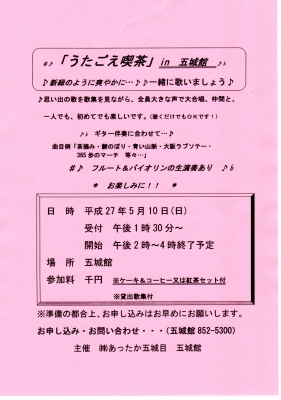 #♪「うたごえ喫茶」in 五城館 ♪♭
♪新緑のように爽やかに…♪♪一緒に歌いましょう♪
♪思い出の歌を歌集を見ながら、全員大きな声で大合唱、仲間と、
一人でも、初めてでも楽しいです。(聴くだけでもOKです!)
♪♭ ギター伴奏に合わせて…♪
曲目例「茶摘み・鯉のぼり・青い山脈・大阪ラプソデー・
365歩のマーチ 等々…」
#♪ フルート&バイオリンの生演奏あり ♪♭
* お楽しみに!! *
日 時 平成27年5月10日(日)
受付 午後1時30分～
開始 午後2時～4時終了予定
場 所 五城館
参加料 千円 ※ケーキ&コーヒー又は紅茶セット付
※貸出歌集付
※準備の都合上、お申し込みはお早めにお願いします。
お申し込み・お問い合わせ・・・(五城館 852-5300)
主催 ㈱あったか五城目 五城館